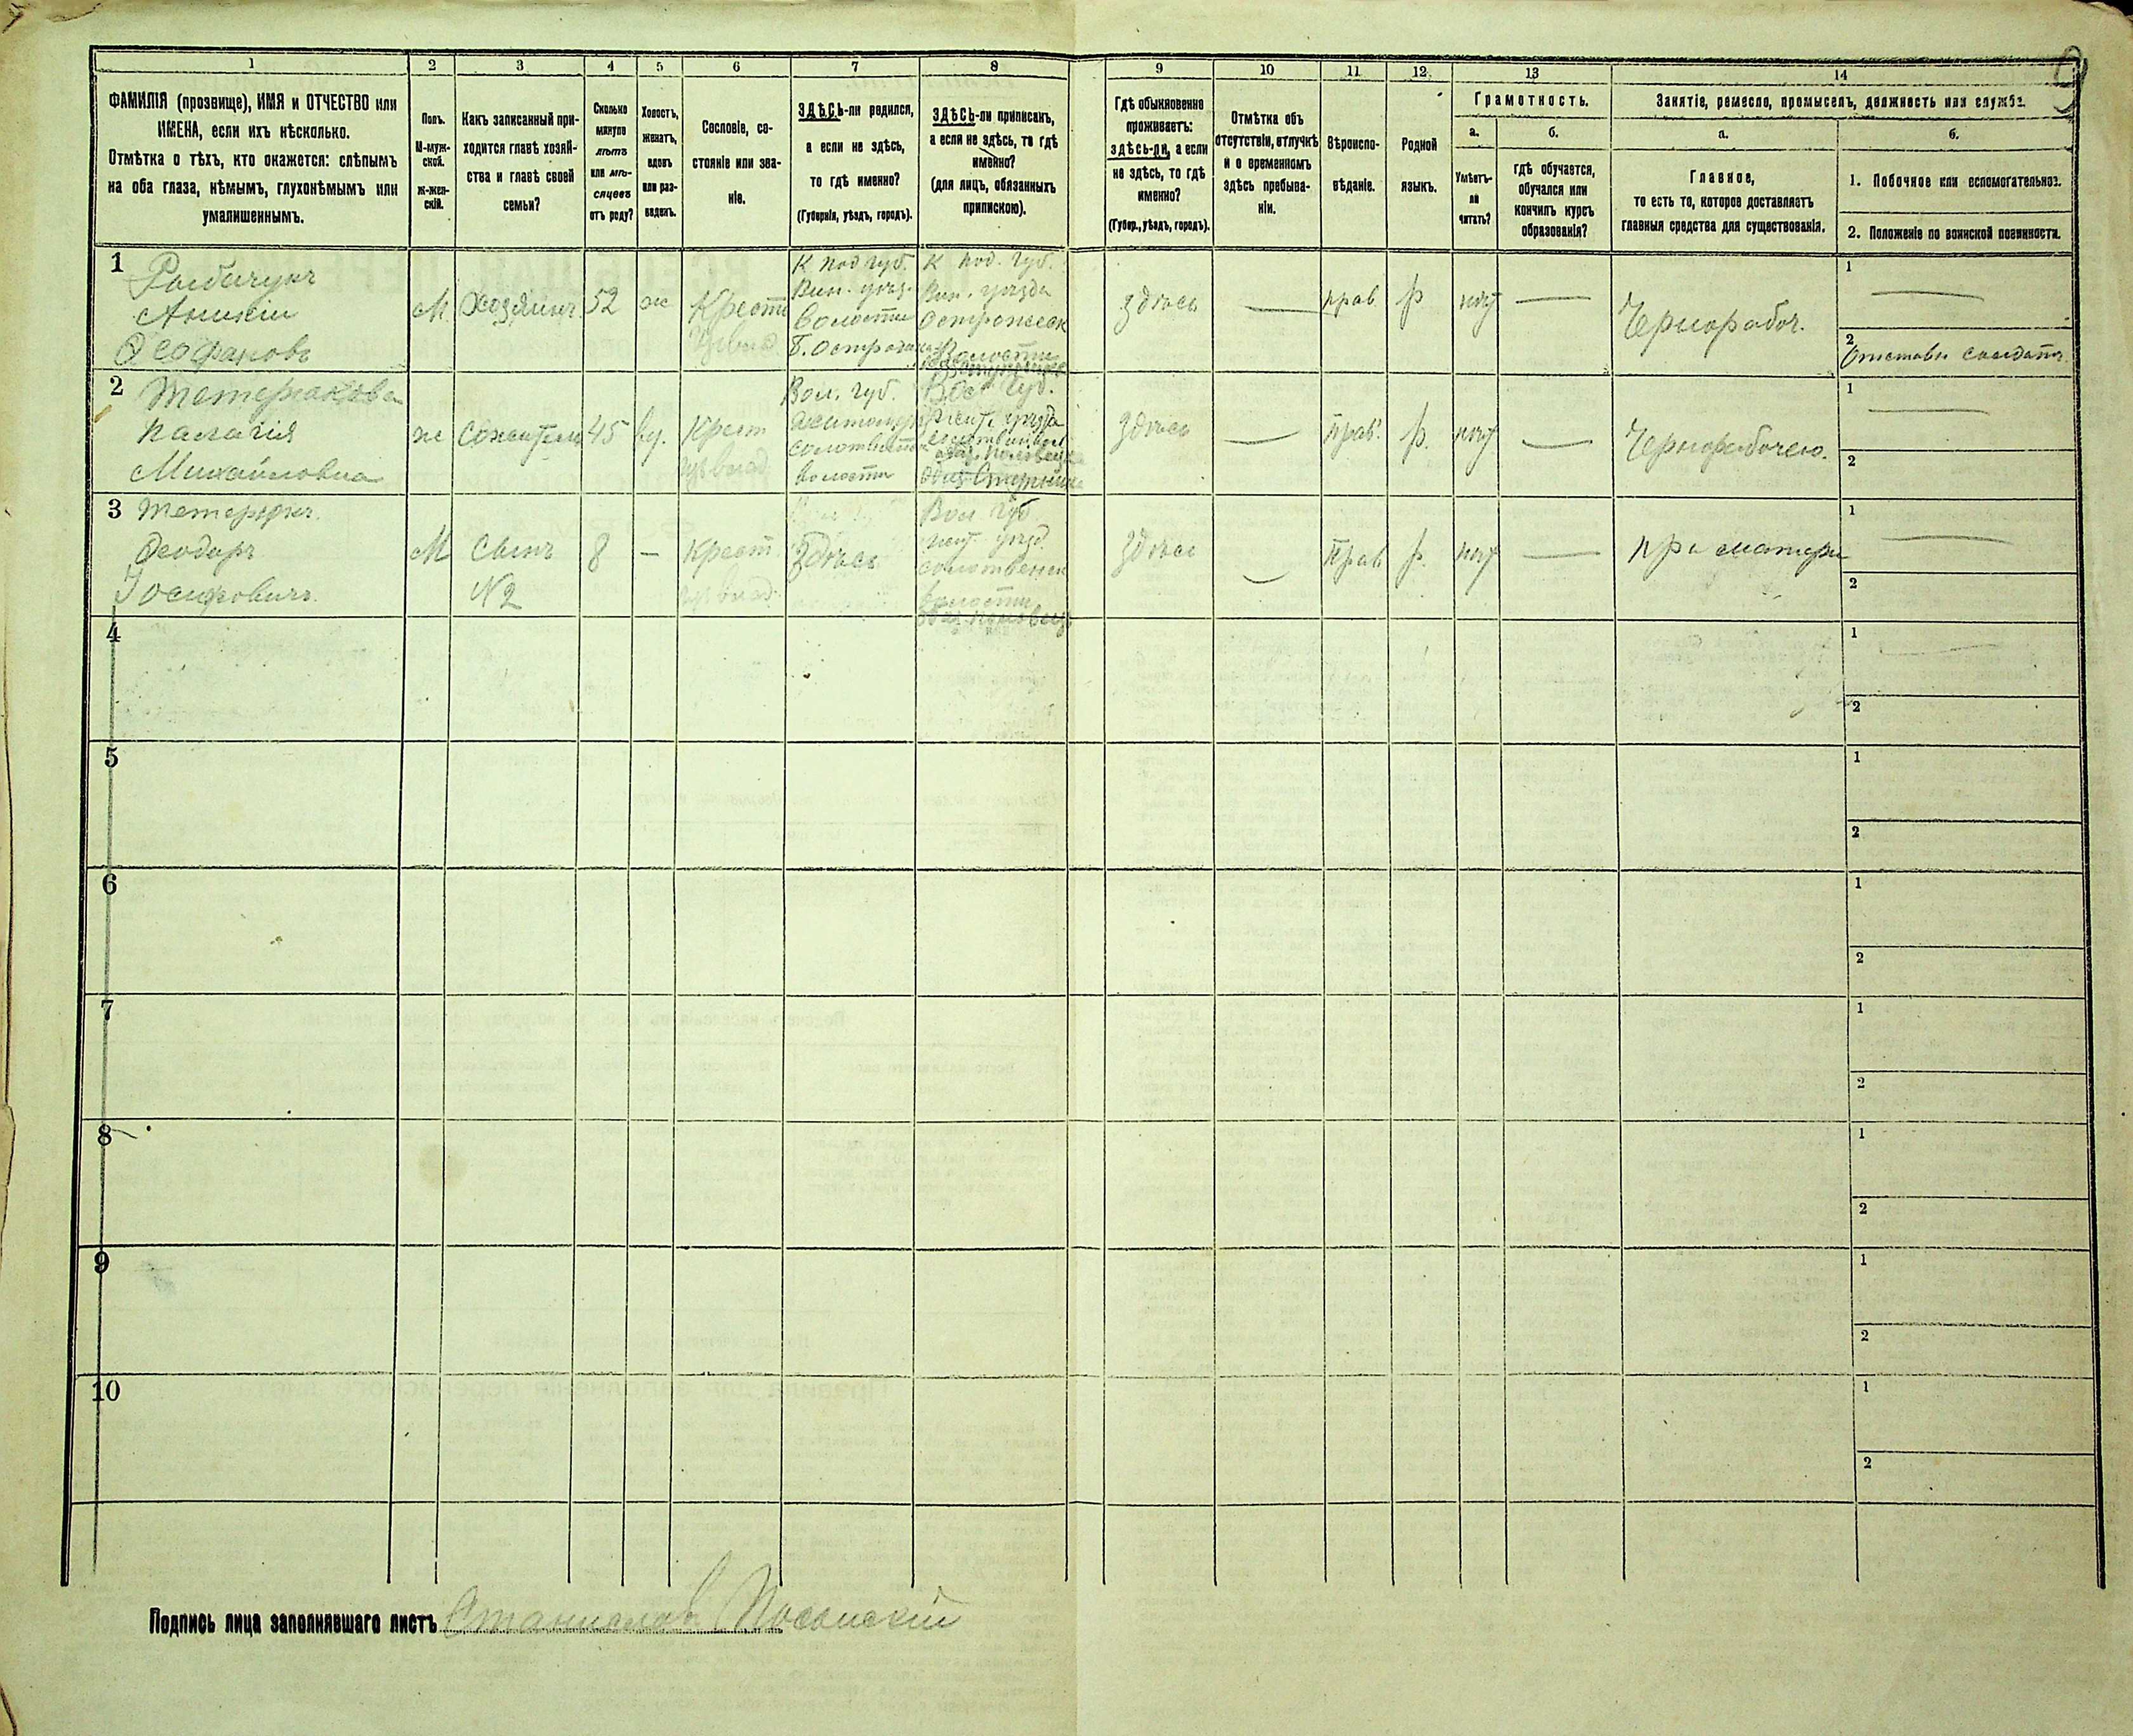 1 2 3 4 5 6 7 8 9 10 11 12 13 14
ФАМИЛІЯ (прозвище), ИМЯ и ОТЧЕСТВО или
ИМЕНА, если ихъ нѣсколько.
Отмѣтка о тѣхъ, кто окажется: слѣпымъ
на оба глаза, нѣмымъ, глухонѣмымъ или
умалишеннымъ.
Полъ.
М-муж-
ской.
ж-жен-
скій.
Какъ записанный при-
ходится главѣ хозяй-
ства и главѣ своей
семьи?
Сколько
минуло
лѣтъ
или мѣ-
сяцевъ
отъ роду?
Холостъ,
женатъ,
вдовъ
или раз-
веденъ.
Сословіе, со-
стояніе или зва-
ніе.
ЗДѢСЬ-ли родился,
а если не здѣсь,
то гдѣ именно?
(Губернія, уѣздъ, городъ).
ЗДѢСЬ-ли приписанъ,
а если не здѣсь, то гдѣ
именно?
(для лицъ, обязанныхъ
припискою).
Гдѣ обыкновенно
проживаетъ:
здѣсь-ли, а если
не здѣсь, то гдѣ
именно?
(Губер., уѣздъ, городъ).
Отмѣтка объ
отсутствіи, отлучкѣ
и о временномъ
здѣсь пребыва-
ніи.
Вѣроиспо-
вѣданіе.
Родной
языкъ.
Грамотность.
а.
Умѣетъ-
ли
читать?
б.
гдѣ обучается,
обучался или
кончилъ курсъ
образованія?
Занятіе, ремесло, промыселъ, должность или служба.
а.
Главное,
то есть то, которое доставляетъ
главныя средства для существованія.
б.
1. Побочное или вспомогательное.
2. Положеніе по воинской повинности.
1
Аникій
Феофановъ
М Хозяинъ 52 ж Крест
К Под губ.
Вин. уѣзд.
волости
К Под. Губ.
Вин. уѣзда
Волости
здѣсь — прав р нѣт — Чернорабоч.
1 —
2 Отставн солдатъ
2
Палагія
Михайловна
ж 45 вд. Крест
Вол. губ.
волости
Вол Губ.
Жит. уѣзда
здѣсь — прав. р. нѣт — Чернорабочею.
1 —
2
3
Феодоръ
Іосифовичъ
М Сынъ
№ 2
8 — Крест Здѣсь
Вол Губ
Жит. уѣзд.
волости
здѣсь — прав р. нѣт — при матери
1 —
2
4 1 2
5 1 2
6 1 2
7 1 2
8 1 2
9 1 2
10 1 2
Подпись лица заполнявшаго листъ Станиславъ